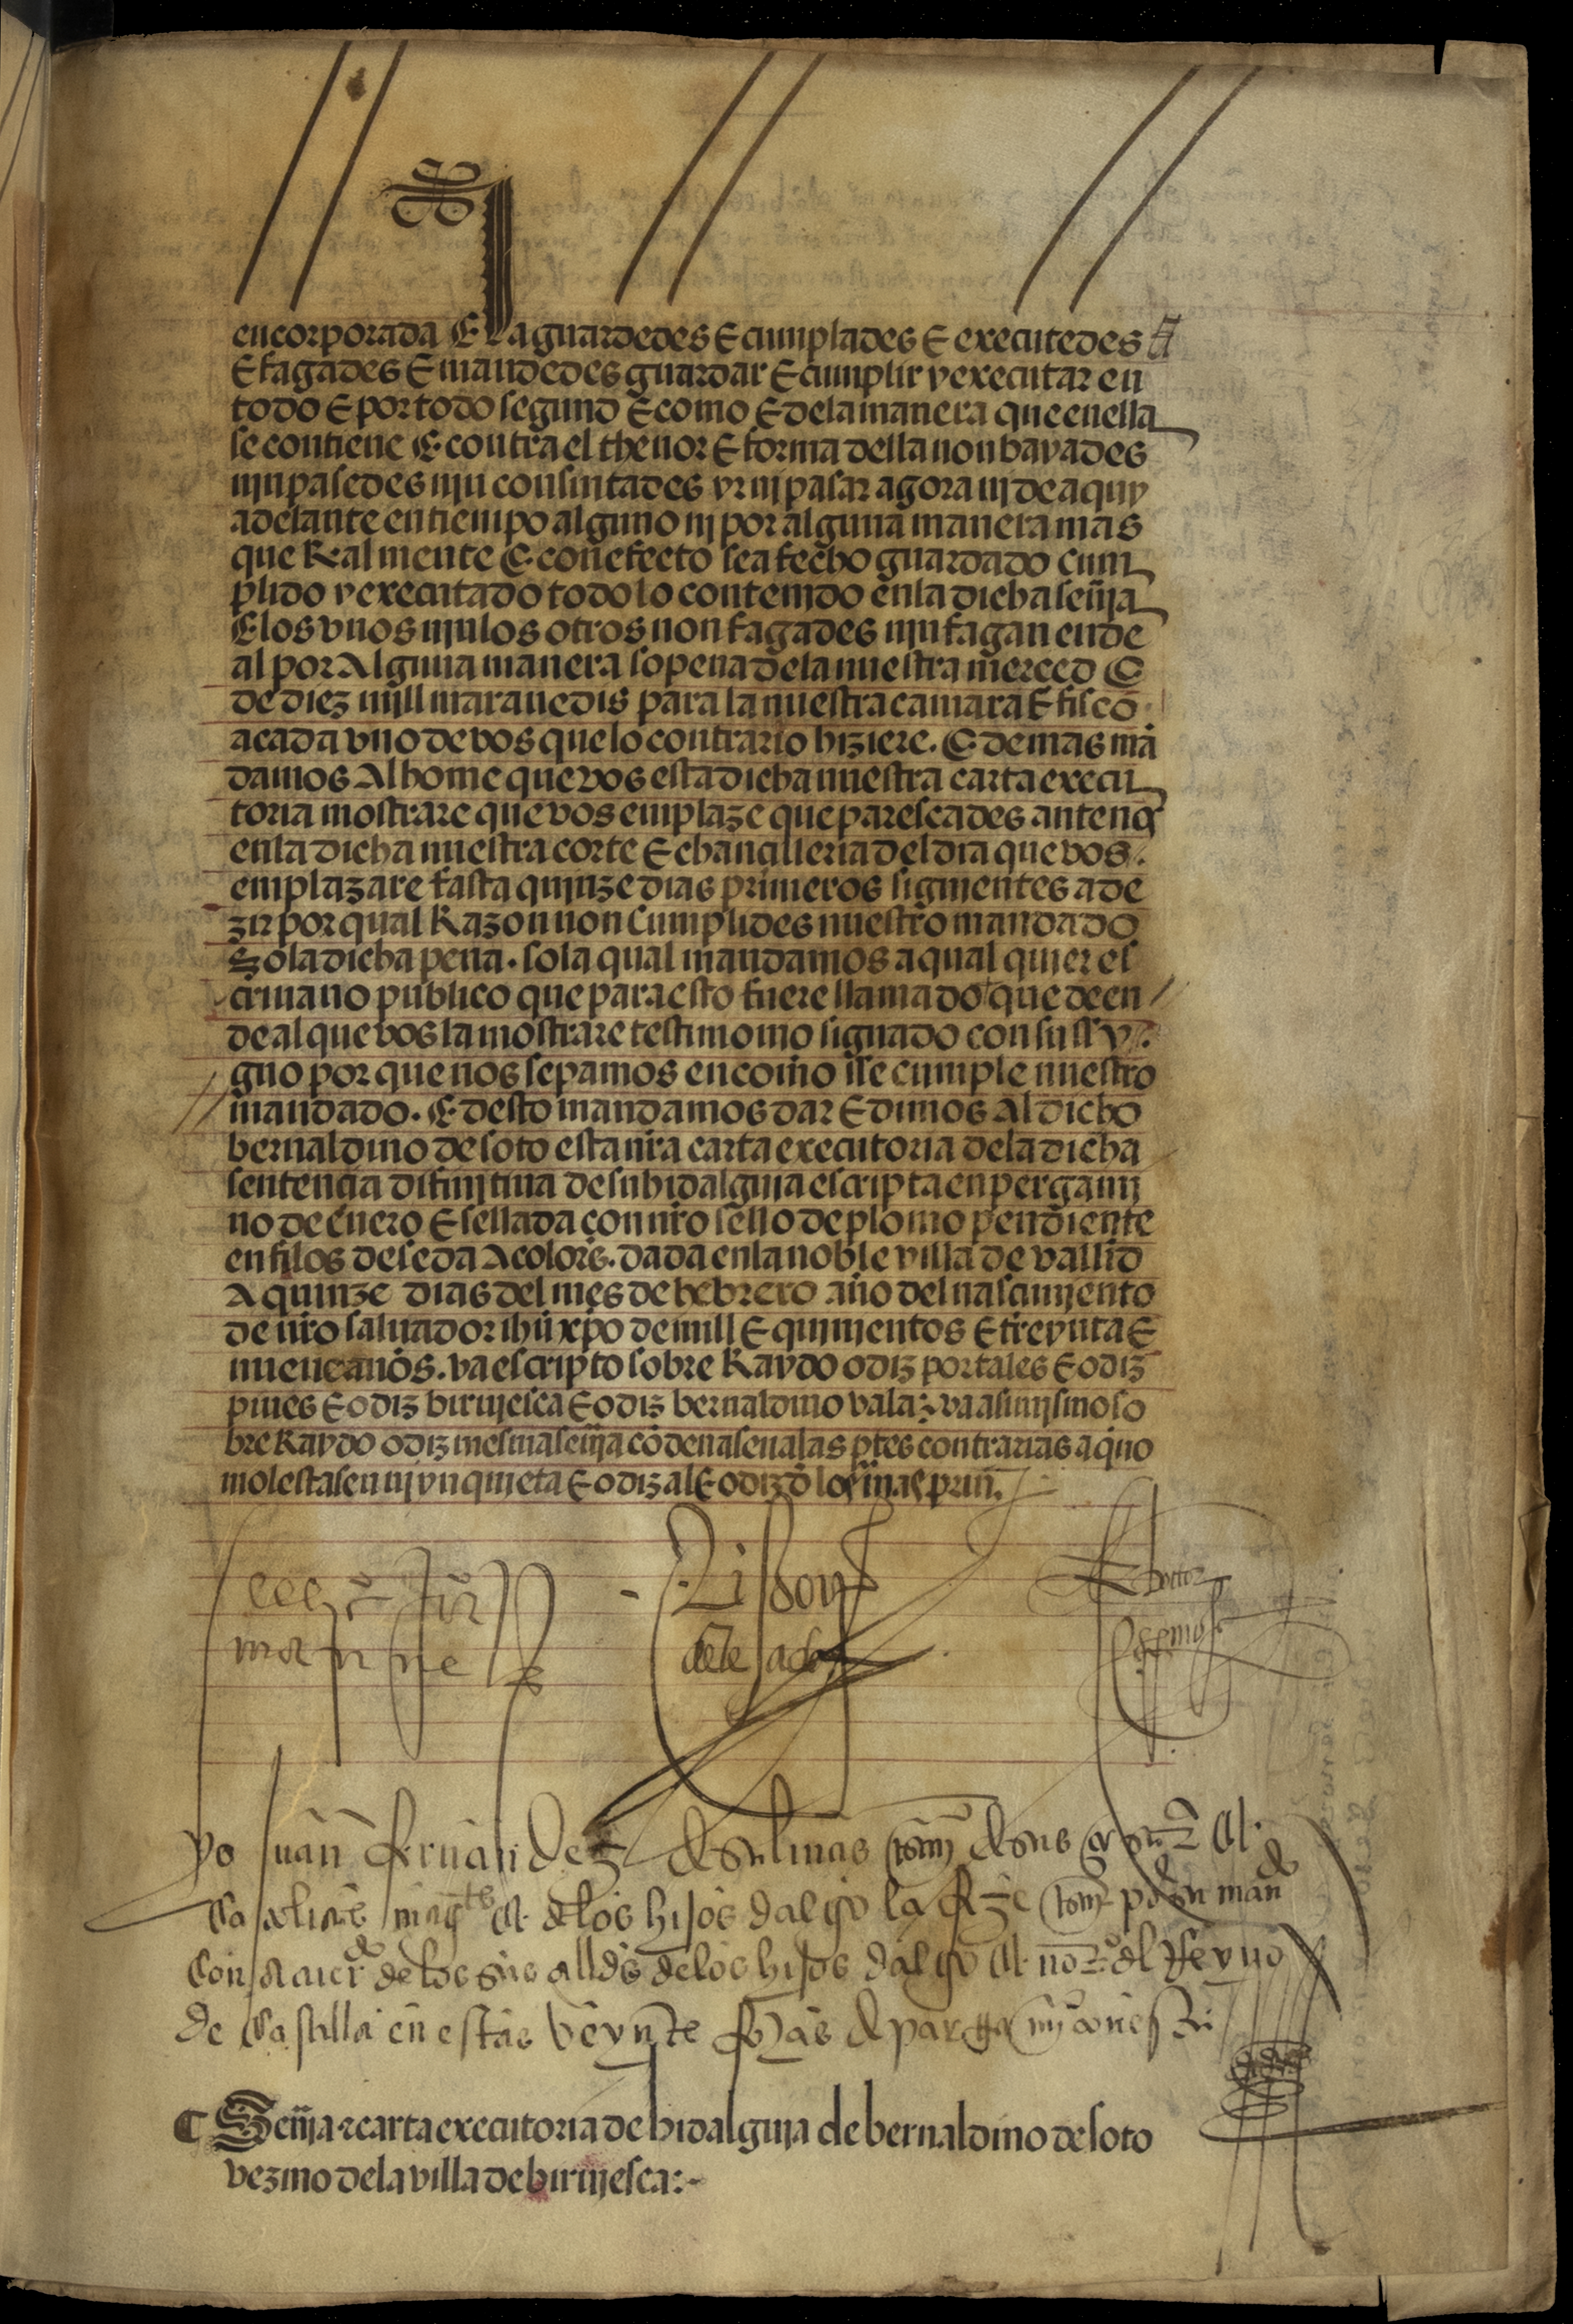 encorporada E la guardedes E cumplades E executedes
E fagades E mandedes guardar E cumplir y executar en
todo E por todo segund E como E dela manera que enella
se contiene E contra el thenor E forma della non bayades
njn pasedes njn consintades yr nj pasar agora nj de aquy
adelante en tiempo alguno nj por alguna manera mas
que Realmente E con efecto sea fecho guardado cum
plido y executado todo lo contenjdo enla dicha senña
E los vnos njn los otros non fagades njn fagan ende
al por Alguna manera so pena dela nuestra merced E
de diez mjll maravedis para la nuestra camara E fisco
a cada vno de vos que lo contrario hiziere. E demas mã
damos Al home que vos esta dicha nuestra carta execu
toria mostrare que vos emplaze que parescades ante nos
enla dicha nuestra corte E chancilleria del dia que vos
emplazare fasta qujnze dias primeros sigujentes a de
zir por qual Razon non Cumplides nuestro mandado
So la dicha pena. so la qual mandamos a qual quier es
criuano publico que para esto fuere llamado que de en
de al que vos la mostrare testimonio signado con su sy
gno por que nos sepamos en como se cumple nuestro
mandado. E desto mandamos dar E dimos Al dicho
bernaldino de soto esta nrã carta executoria dela dicha
sentencia difinjtiua de su hidalguia escripta en pergamj
no de cuero E sellada con nrõ sello de plomo pendiente
en filos de seda A colores. dada enla noble villa de vallid
A quinze dias del mes de hebrero año del nascimjento
de nrõ saluador ihũ xpõ de mill E qujnjentos E treynta E
nueue años. va escripto sobre Raydo o diz portales E o diz
pues E o diz birujesca E o diz bernaldino vala. va asimjsmo so
bre Raydo o diz mesma senña cõdenasen a las ptes contrarias a q no
molestasen nj ynqujeta E o diz al E o diz
doctor
yo Juan ferrnandez de salinas de sus
catolicas mag.tes de los hijos dalgo la fize por su man.do
con de los sus all.des de los hijos dalgo del Reyno
de Castilla en estas veynte fojas de
Senña E carta executoria de hidalguja de bernaldino de soto
vezino dela villa de birujesca:-